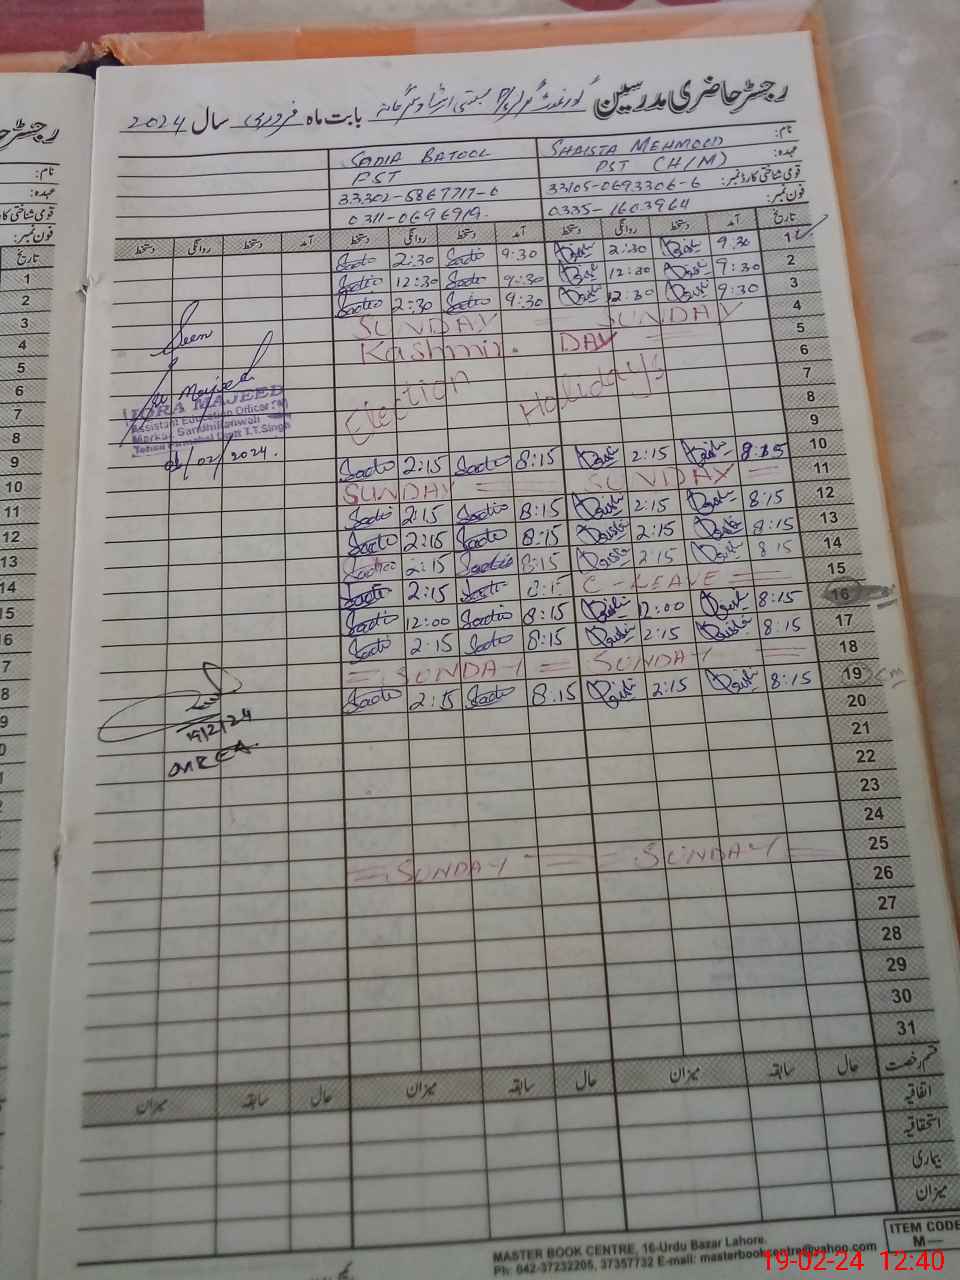 رجسٹر حاضری مدرسین گورنمنٹ بابت ماہ فروری سال 2024
نام: SHAISTA MEHMOOD SADIA BATOOL
عہدہ: PST (H/M) PST
قومی شناختی کارڈ نمبر: 33105-0693306-6 33302-5867717-0
فون نمبر: 0335-1603964 0311-0696919.
تاریخ آمد دستخط روانگی دستخط آمد دستخط روانگی دستخط آمد دستخط روانگی دستخط
1 9:30 2:30 9:30 Sadia 2:30 Sadia
2 9:30 12:30 9:30 Sadia 12:30 Sadia
3 9:30 12:30 9:30 Sadia 2:30 Sadia
4 SUNDAY SUNDAY
5 Kashmir. DAY
6
7 Election Holidays
8
9
10 8:15 2:15 8:15 Sadia 2:15 Sadia
11 SUNDAY SUNDAY
12 8:15 2:15 8:15 Sadia 2:15 Sadia
13 8:15 2:15 8:15 Sadia 2:15 Sadia
14 8:15 2:15 8:15 Sadia 2:15 Sadia
15 C-LEAVE 8:15 Sadia 2:15 Sadia
16 8:15 12:00 8:15 Sadia 12:00 Sadia
17 8:15 2:15 8:15 Sadia 2:15 Sadia
18 SUNDAY SUNDAY
19 8:15 2:15 8:15 Sadia 2:15 Sadia
20
21
22
23
24
25 SUNDAY SUNDAY
26
27
28
29
30
31
Seen
IQRA MAJEED
Assistant Education Officer (W)
Markaz Sandhilianwali
Tehsil Pirmahal Distt T.T.Singh
/02/2024.
19/2/24
قسم رخصت حال سابقہ میزان حال سابقہ میزان حال سابقہ میزان
اتفاقیہ
استحقاقیہ
بیماری
میزان
ITEM CODE
M—
MASTER BOOK CENTRE, 16-Urdu Bazar Lahore.
Ph: 042-37232205, 37357732 E-mail: masterbookcentre@yahoo.com
19-02-24 12:40
رجسٹر
نام:
عہدہ:
قومی شناختی
فون نمبر:
تاریخ
1
2
3
4
5
6
7
8
9
10
11
12
13
14
15
16